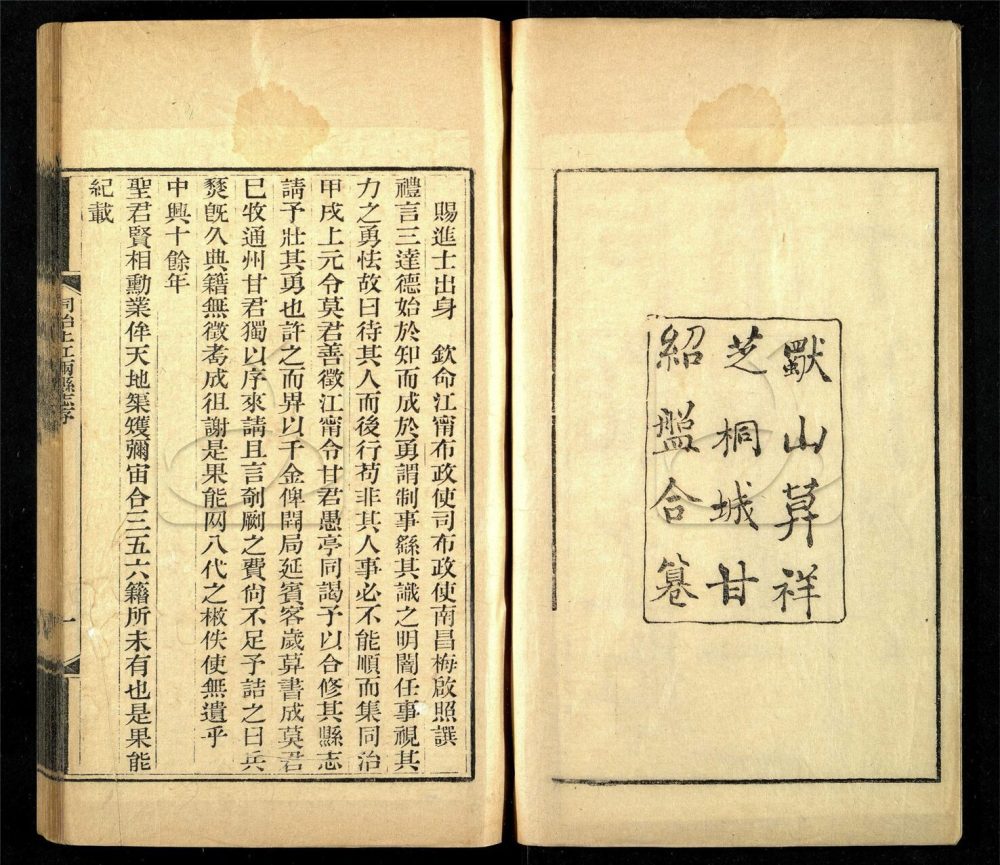 獃山莫祥
芝桐城甘
紹盤合纂
賜進士出身 欽命江甯布政使司布政使南昌梅啟照譔
禮言三達德始於知而成於勇謂制事繇其識之明闇任事視其
力之勇怯故曰待其人而後行苟非其人事必不能順而集同治
甲戌上元令莫君善徵江甯令甘君愚亭同謁予以合修其縣志
請予壯其勇也許之而畀以千金俾開局延賓客歲莫書成莫君
已牧通州甘君獨以序來請且言剞劂之費尙不足予詰之曰兵
燹旣久典籍無徵耇成徂謝是果能网八代之樷佚使無遺乎
中興十餘年
聖君賢相勳業侔天地榘矱彌宙合三五六籍所未有也是果能
紀載
同治上江兩縣志序
一